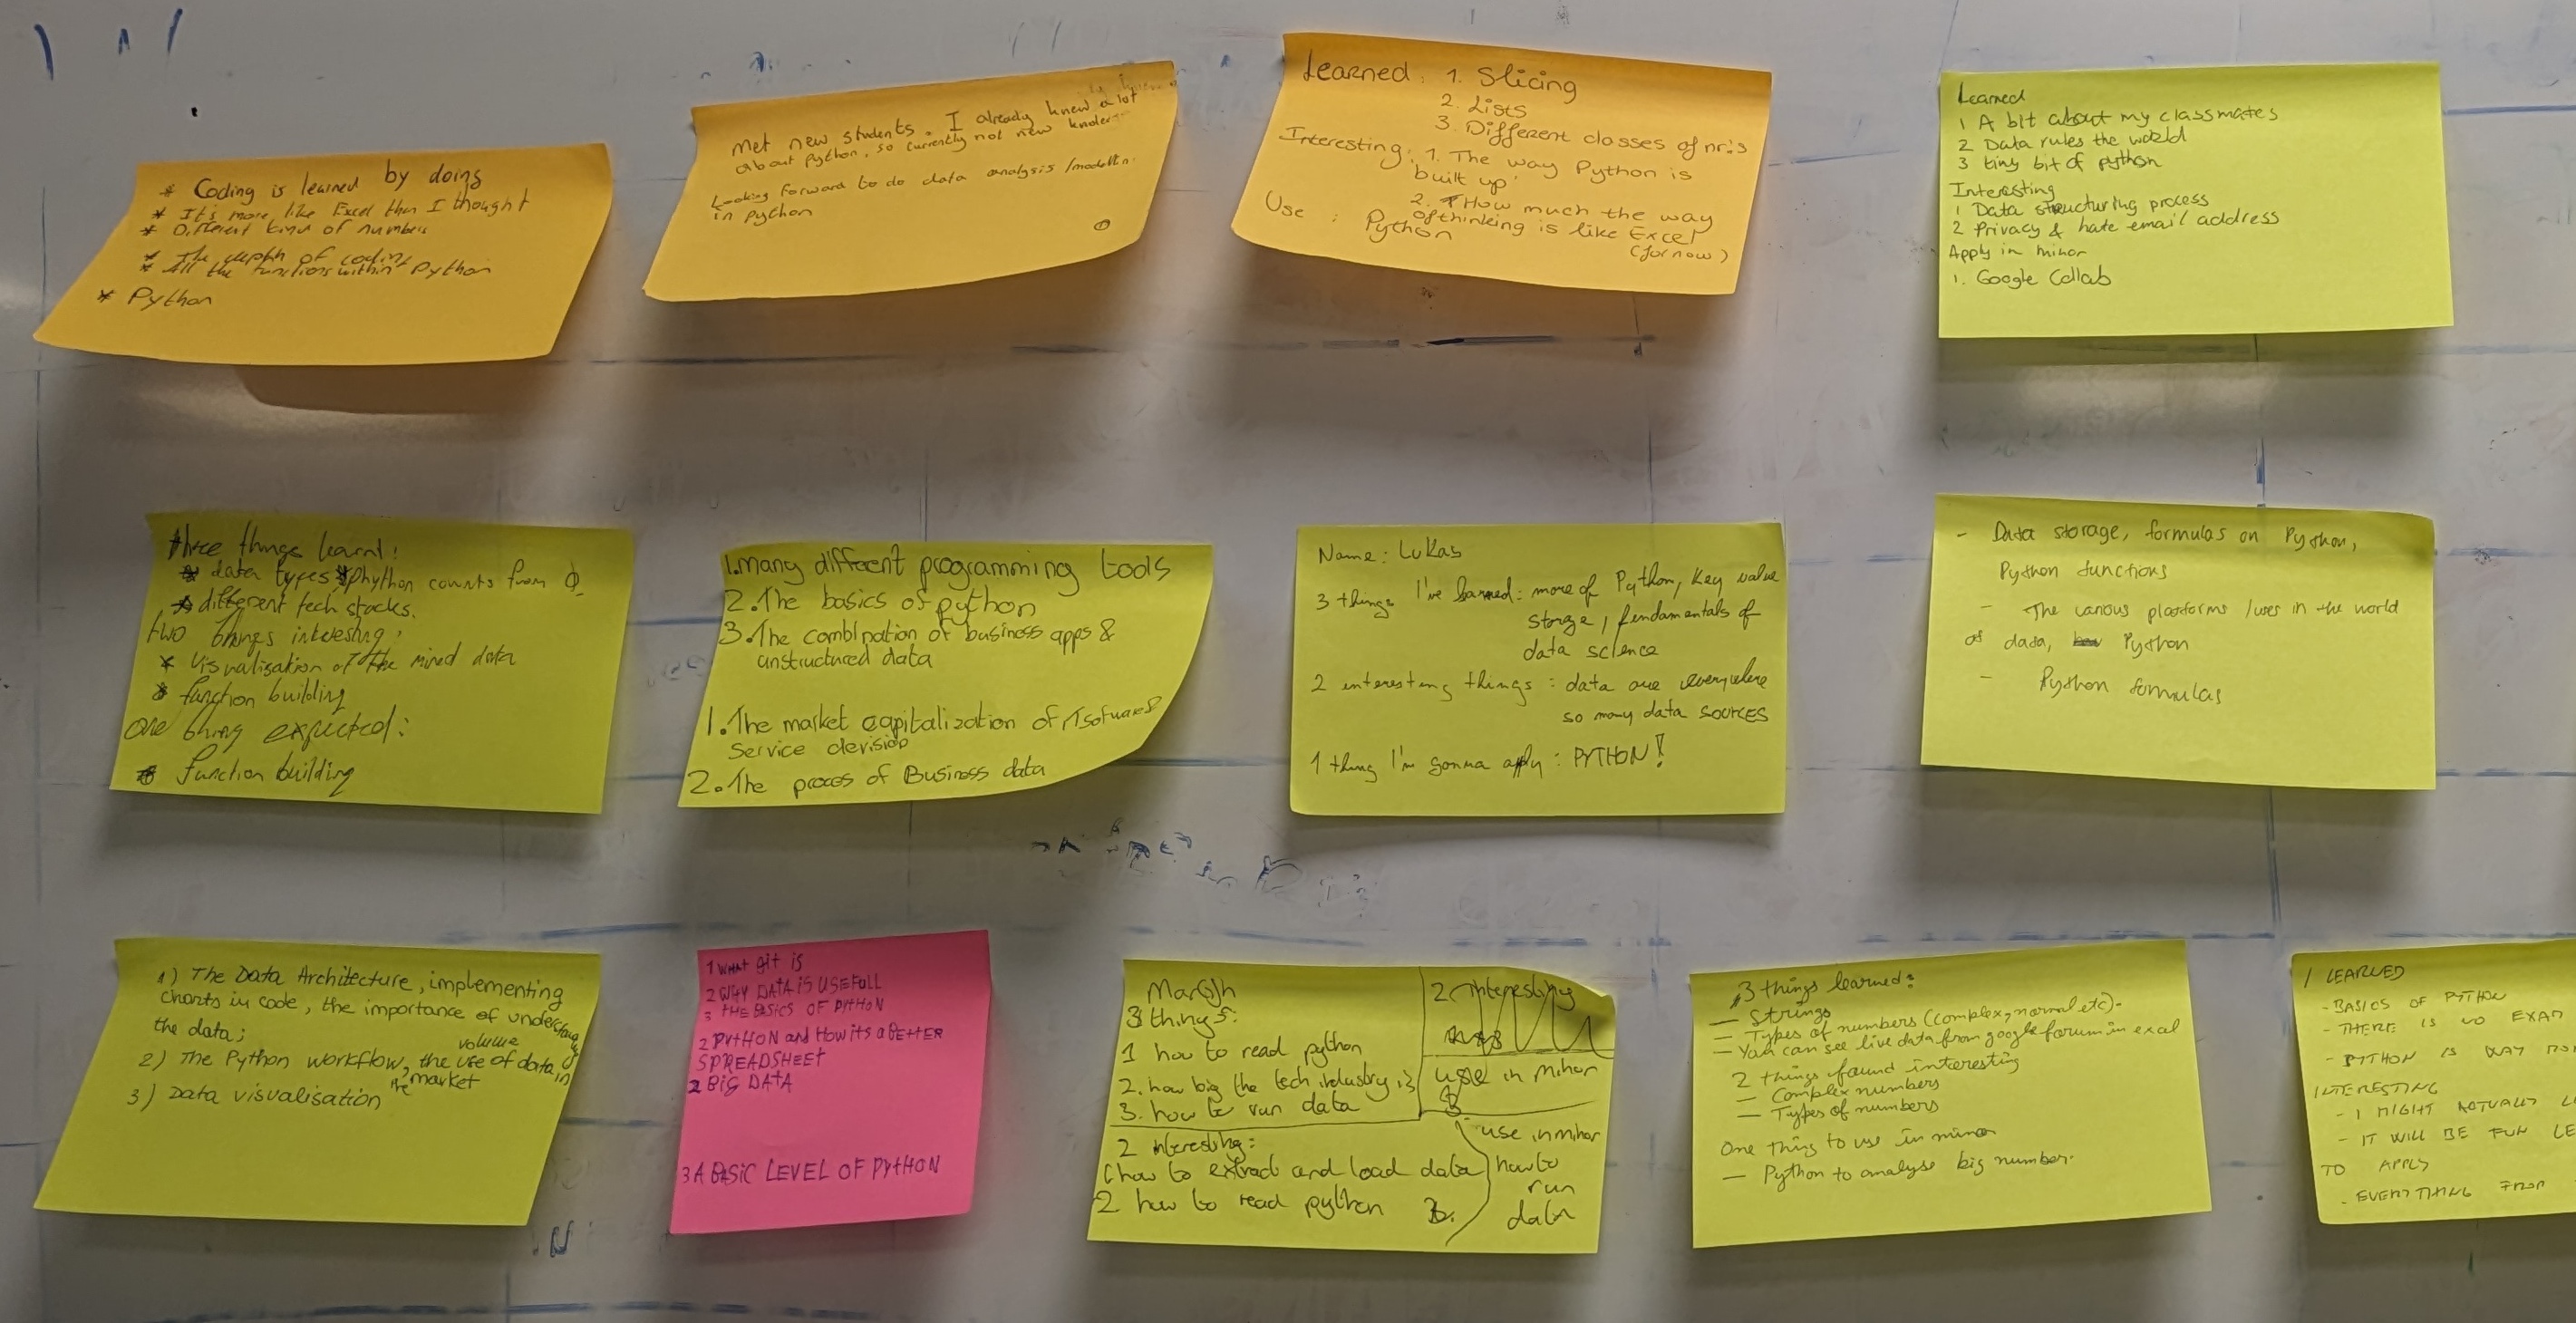 * Coding is learned by doing
* It's more like Excel than I thought
* Different kind of numbers
* The depth of coding
* All the functions within Python
* Python
Met new students. I already knew a lot
about python, so currently not new
Looking forward to do data analysis /
in python
Learned: 1. Slicing
2. Lists
3. Different classes of nr:s
Interesting: 1. The way Python is
built up'
2. How much the way
of thinking is like Excel
(for now)
Use: Python
Learned
1 A bit about my classmates
2 Data rules the world
3 tiny bit of python
Interesting
1 Data structuring process
2 Privacy & hate email address
Apply in minor
1. Google Collab
three things learnt:
* data types phython counts from 0
* different tech stacks.
two things interesting:
* Visualisation of the mined data
* function building
One thing expected:
* function building
1. many different programming tools
2. The basics of python
3. The combination of business apps &
unstructured data
1. The market capitalization of
Service devision
2. The proces of Business data
Name: Lukas
3 things I've learned: more of Python, key value
storge, fundamentals of
data science
2 interesting things: data are everywhere
so many data sources
1 thing I'm gonna apply: PYTHON!
- Data storage, formulas on Python,
Python functions
- The various platforms /uses in the world
of data, Python
- Python formulas
1) The Data Architecture, implementing
charts in code, the importance of
the data;
2) The Python workflow, the use of data in
volume
the market
3) Data visualisation
1 WHAT git is
2 WHY DATA IS USEFULL
3 THE BASICS OF PYTHON
2 PYTHON and How its a BETTER
SPREADSHEET
2 BIG DATA
3 A BASIC LEVEL OF PYTHON
3 things:
1 how to read python
2. how big the tech industry is
3. how to run data
2 interesting
use in minor
2 interesting:
1 how to extract and load data
2 how to read python
use in minor
how to
run
data
3 things learned:
— Strings
— Types of numbers (complex, normal etc).
— You can see live data from google forum in exal
2 things found interesting
— Complex numbers
— Types of numbers
One thing to use in minor
— Python to analyse big number.
LEARNED
- BASICS OF PYTHON
- THERE IS NO EXAM
- PYTHON IS WAY
INTERESTING
- I MIGHT ACTUALLY
- IT WILL BE FUN
TO APPLY
- EVERYTHING FROM